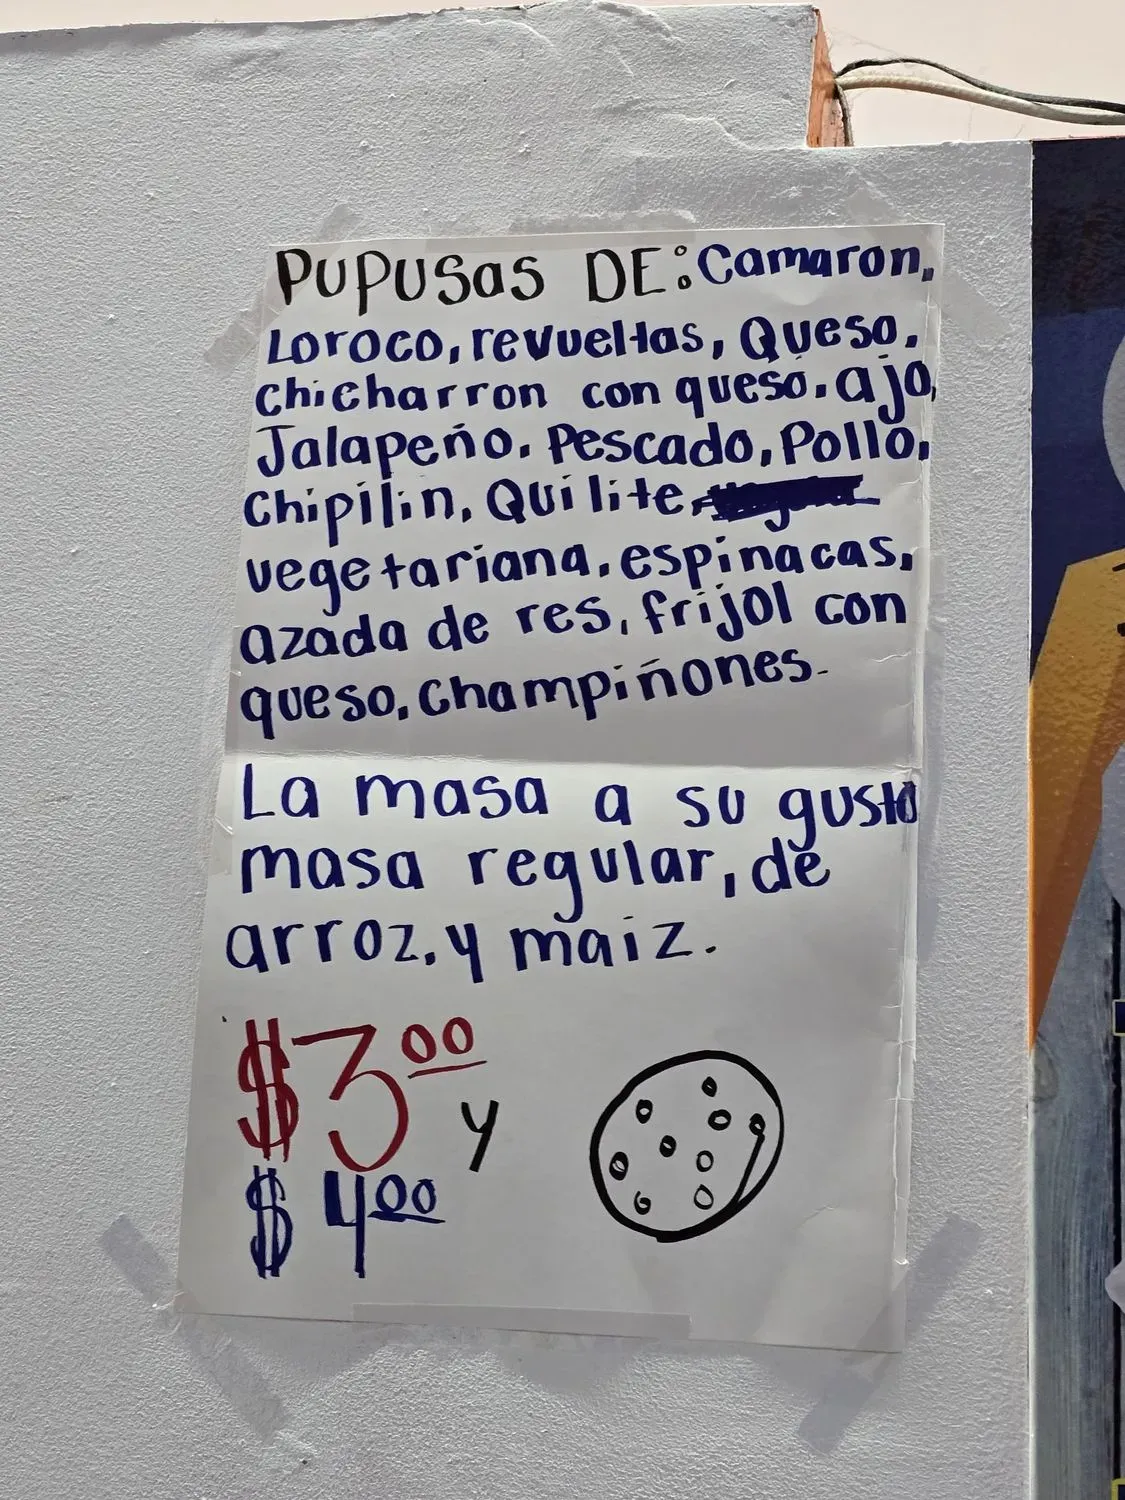 PUPUSAS DE: Camaron,
Loroco, revueltas, Queso,
chicharron con queso, ajo,
Jalapeño, Pescado, Pollo,
Chipilin, Quilite,
vegetariana, espinacas,
azada de res, frijol con
queso, Champiñones.
La masa a su gusto
masa regular, de
arroz, y maiz.
$3.00 y
$4.00